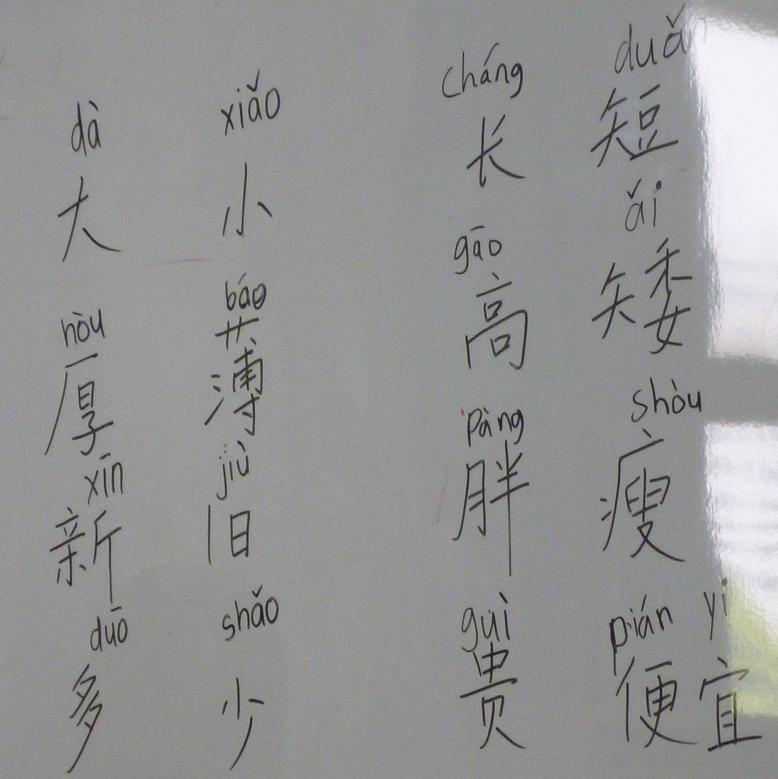 dà xiǎo cháng duǎn
大 小 长 短
hòu báo gāo ǎi
厚 薄 高 矮
xīn jiù pàng shòu
新 旧 胖 瘦
duō shǎo guì pián yi
多 少 贵 便宜